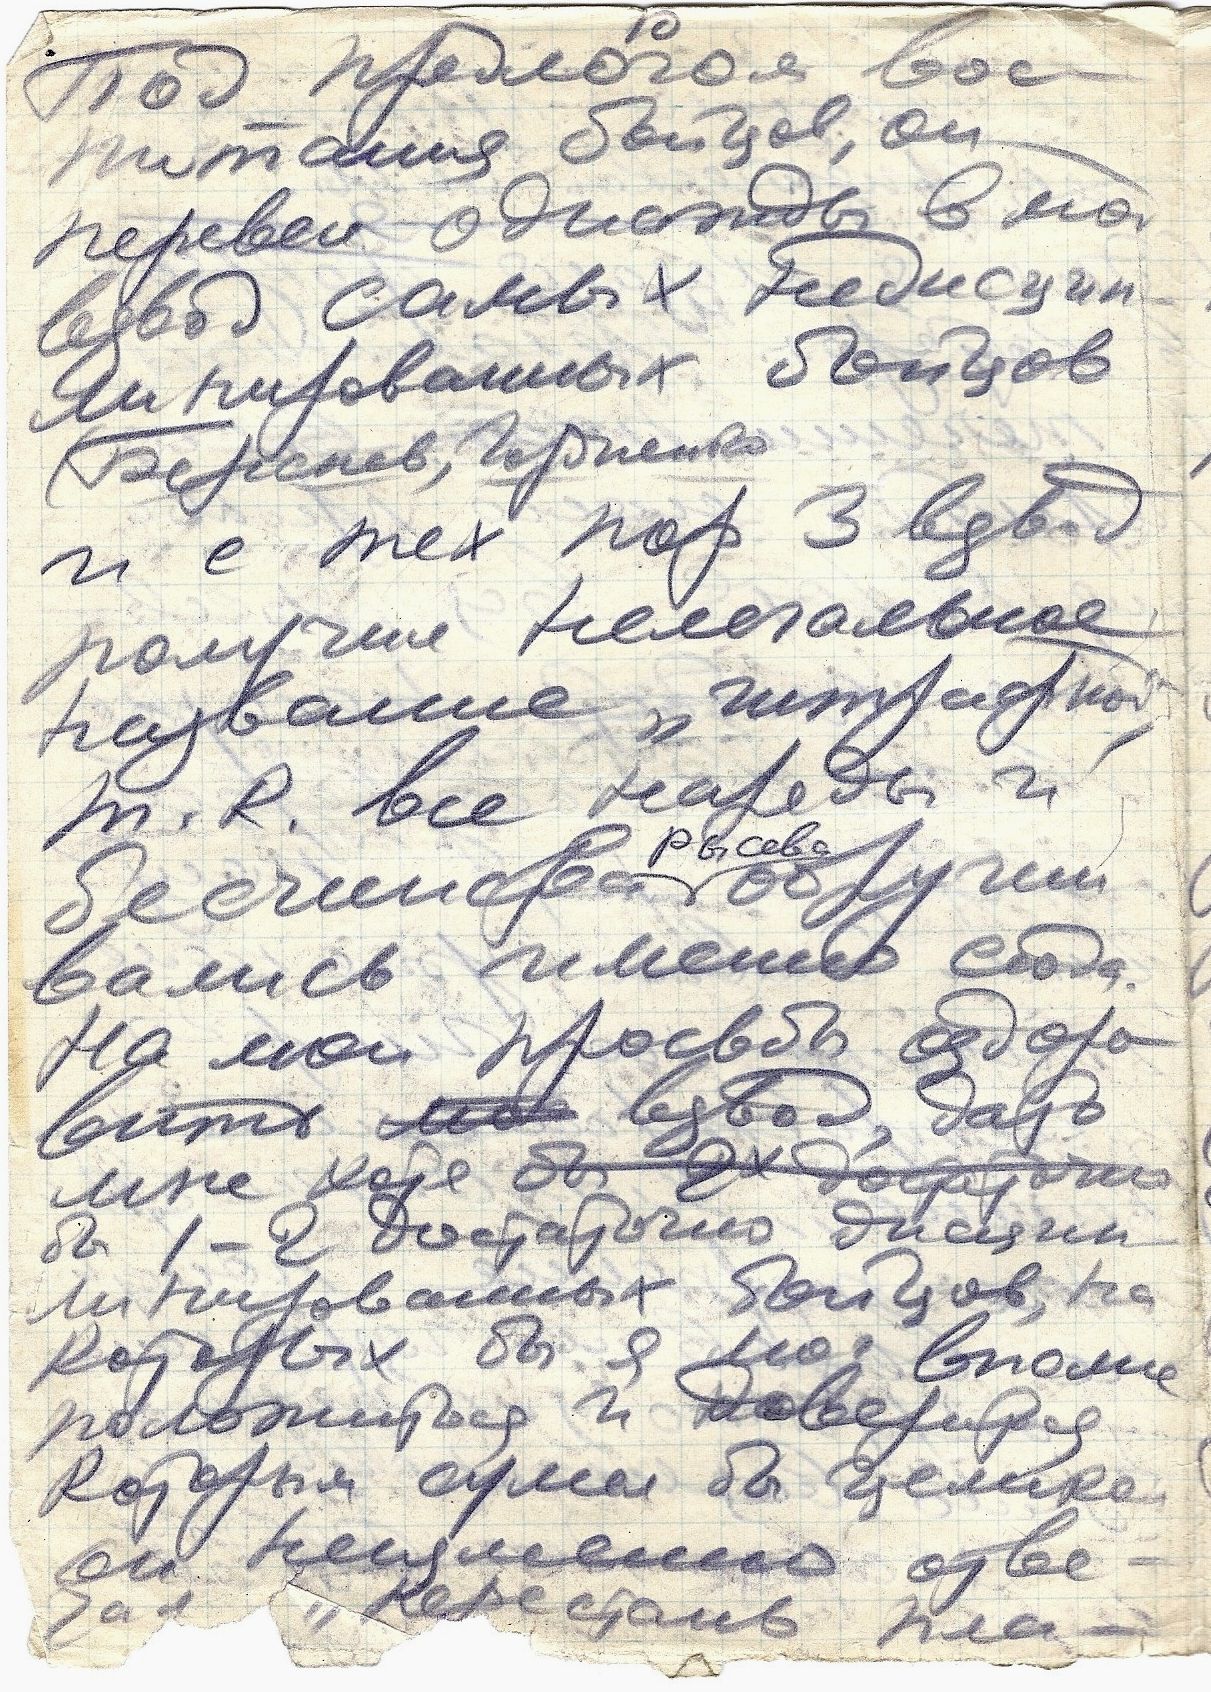 10
Под предлогом вос-
питания бойцов, он
перевел однажды в мой
взвод самых недисцип-
линированных бойцов
(Берснев,
и с тех пор 3 взвод
получил нелегальное
название „штрафной"
т. к. все наряды и
бесчинства Рысева обруши
вались именно сюда.
На мои просьбы оздоро
вить взвод, дать
мне хотя бы
бы 1-2 достаточно дисцип
линированных бойцов, на
которых бы я мог вполне
положиться и довериться
которым сумел бы целиком
он неизменно отве-
чал „перестань пла-